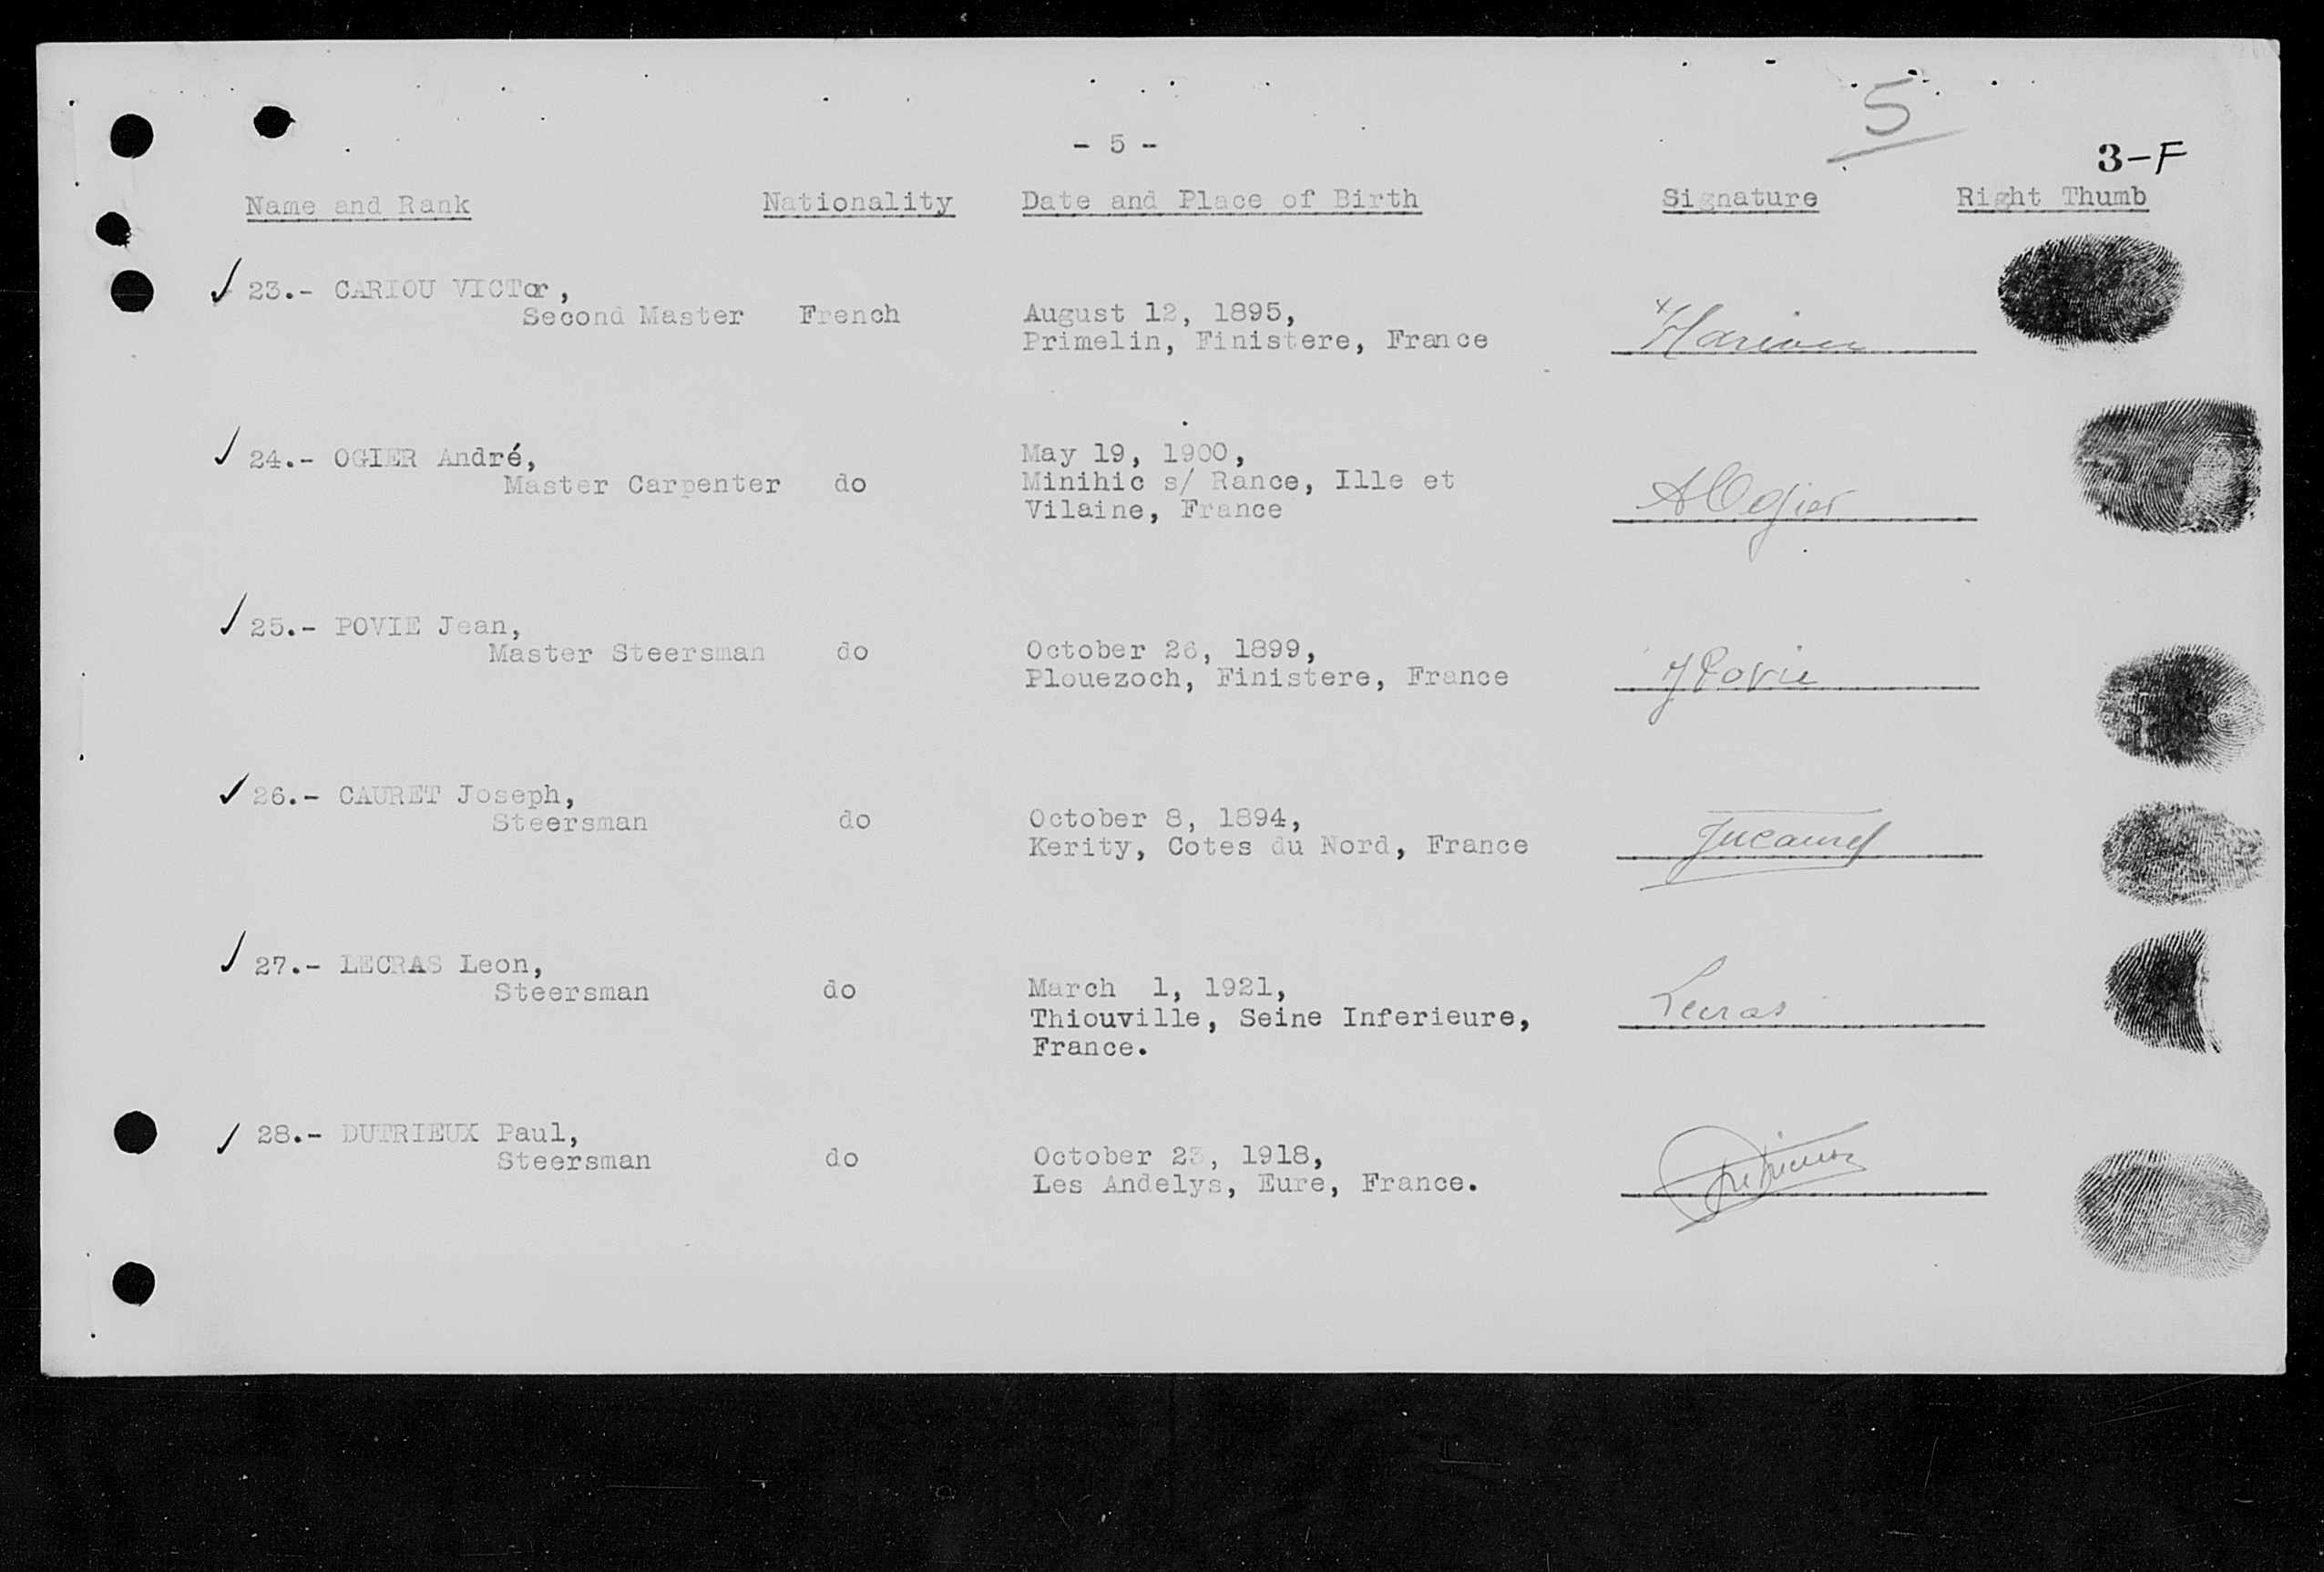 5
- 5 -
3-F
Name and Rank Nationality Date and Place of Birth Signature Right Thumb
23.- CARIOU VICTor,
Second Master French August 12, 1895,
Primelin, Finistere, France
24.- OGIER André, May 19, 1900,
Master Carpenter do Minihic s/ Rance, Ille et
Vilaine, France
AOgier
25.- POVIE Jean,
Master Steersman do October 26, 1899,
Plouezoch, Finistere, France
JPovie
26.- CAURET Joseph,
Steersman do October 8, 1894,
Kerity, Cotes du Nord, France
27.- LECRAS Leon,
Steersman do March 1, 1921,
Thiouville, Seine Inferieure,
France.
Lecras
28.- DUTRIEUX Paul,
Steersman do October 23, 1918,
Les Andelys, Eure, France.